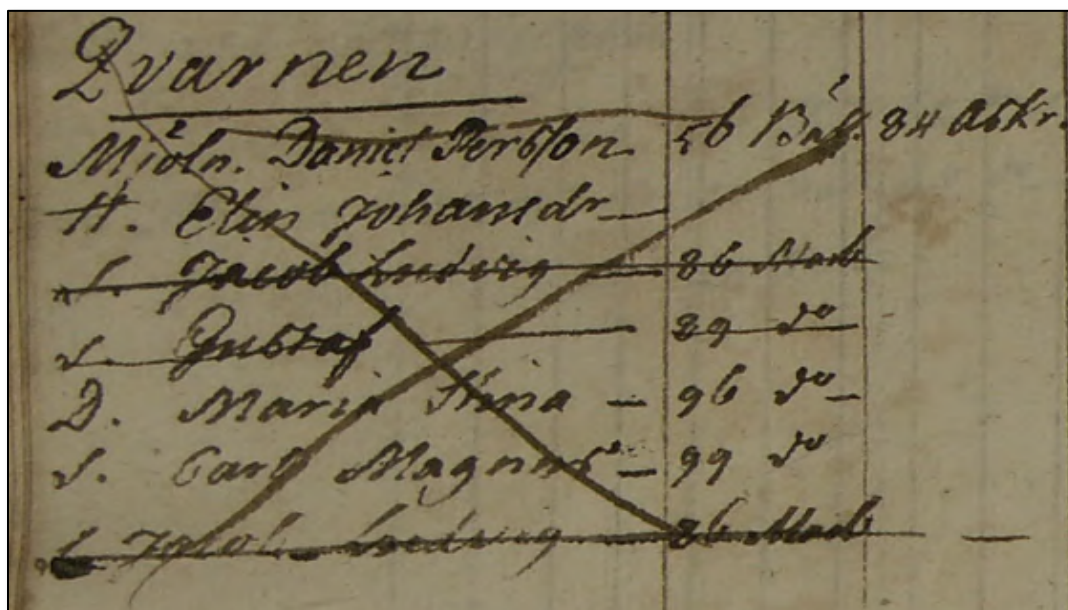 Qvarnen
Miöln. Daniel Persson 56 Bäf. 84 Askr.
H. Elin Johansdr
S. Jacob Ludvig 86 Marb
S. Gustaf 89 do
D. Maria Stina 96 do
S. Carl Magnus 99 do
S. Jacob Ludvig 86 Marb